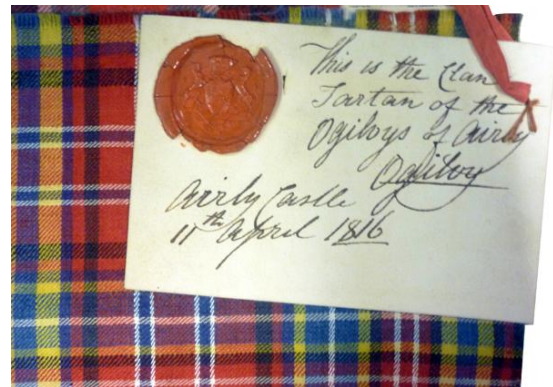 This is the Clan
Tartan of the
Ogilvys of Airly
Ogilvy
Airly Castle
11th April 1816